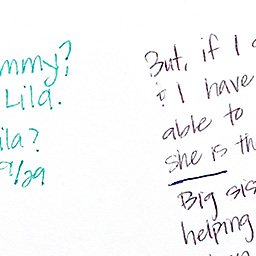 mmy?
Lila.
ila?
9/29
But, if I
I have
able to
she is th
Big sis
helping